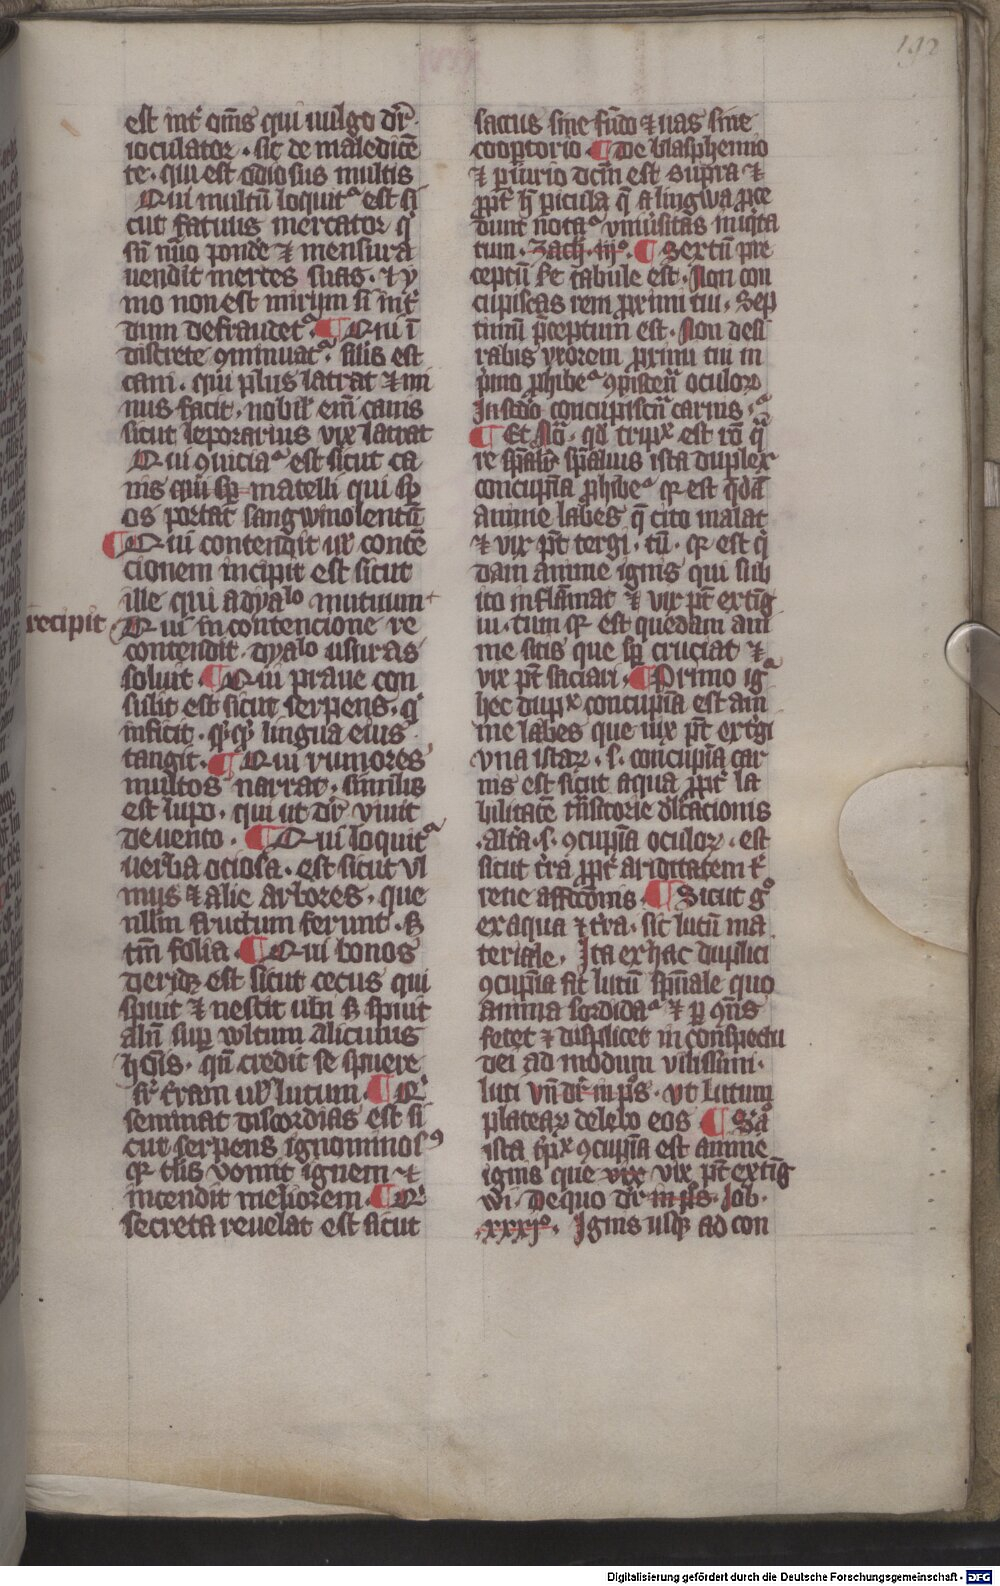 192
est int͛ om̄s qui uulgo dr̄.
ioculator. sic de maledicē
te. qui est odiosus multis
Qui multū loquit᷒ est si
cut fatuus mercator qͥ
sn̄ nūo ponde᷒ ⁊ mensura
uendit merces suas. ⁊ y
mo non est mirum si int͛
dum defraudet᷒. ¶ Qui ī
discrete ꝯminuat᷒. siīlis est
cani. qui plus latrat ⁊ mi
nus facit. nobil̕ em̄ canis
sicut leporarius vix latrat
Qui ꝯuicia᷒ est sicut ca
nis qui sp̄ matelli qui sp̄
os portat sangwinolentū
¶ Qui contendit ul̕ contē
cionem incipit est sicut
ille qui a dyalo mutuum
recipit Qui in contencione re
contendit. dyalo usuras
soluit. ¶ Qui praue con
sulit est sicut serpens. qͥ
inficit. qͥcqͥd lingua eius
tangit. ¶ Qui rumores
multos narrat. similis
est lupo. qui ut dr̄ viuit
de uento. ¶ Qui loquit᷒
uerba ociosa. est sicut vl
mus ⁊ alie arbores. que
nllm̄ fructum ferunt. sꝫ
tm̄ folia. ¶ Qui bonos
deridꝫ est sicut cecus qui
spuit ⁊ nescit ubi sꝫ spuit
aln̄ suꝑ wltum alicuius
hoīs. qn̄ credit se spuere
sr̄ t͛ram ul̕ lutum. ¶ Qͥ
seminat discordias est si
cut serpens ignominosꝰ
qꝛ tlis vomit ignem ⁊
incendit meliorem. ¶ Qͥ
secreta reuelat est sicut
saccus sine fūdo ⁊ uas sine
cooꝑtorio. ¶ De blasphemio
⁊ ꝑiurio dcm̄ est supra ⁊
ꝓpt͛ h̄ picula q̄ a lingwa ꝓce
dunt nōta᷒ vniūsitas iniqͥta
tum. Zach. iijͦ. ¶ Sextū pre
ceptū sc̄e tabule est. Non con
cupiscas rem ꝓximi tui. Sep
timū p̄ceptum est. Non desi
rabis vxorem ꝓximi tui in
pͥmo ꝓhibe᷒ ꝯpiscen̄ oculoꝝ
In scdo concupiscn̄ carnis.
¶ Et No. qd triplx̄ est rō qͣ
re spn̄alr̄ spn̄aliis ista duplex
concupīa ꝓhibe᷒ qꝛ est qͥdā
anime labes q̄ cito malat
⁊ vix pt̄ tergi. tū. qꝛ est qͥ
dam anime ignis qui sub
ito inflāmat ⁊ vix pt̄ extīg
ui. tum qꝛ est quedam ani
me sitis que sp̄ cruciat ⁊
vix pt̄ saciari. ¶ Primo ig᷒
hec duplx̄ concupīa est ani
me labes que uix pt̄ ext͛gi
vna istaꝝ. s. concupīa car
nis est sicut aqua ꝓpt͛ la
bilitatē tn̄sitorie dl̕cacionis
.alt͛a. s. ꝯcupīa oculoꝝ. est
sicut t͛ra ꝓpt͛ ariditatem t͛
rene affccōnis. ¶ Sicut gͦ
ex aqua ⁊ t͛ra. sic lutū ma
teriale. Ita ex hac duplici
ꝯcupīa fit lutū spn̄ale quo
anima sordida᷒ ⁊ ꝑ ꝯn̄s
fetet ⁊ displicet in conspectu
dei ad modum vilissimi.
luti vn̄ dr̄ in ps̄. vt lutum
plateaꝝ delebo eos ¶ Scͣa
ista tp̄x ꝯcupīa est anime
ignis que vix vix pt̄ extīg
wi. De quo dr̄ in ps̄. Job.
.xxxiͦ. Ignis usqꝫ ad con
Digitalisierung gefördert durch die Deutsche Forschungsgemeinschaft - DFG